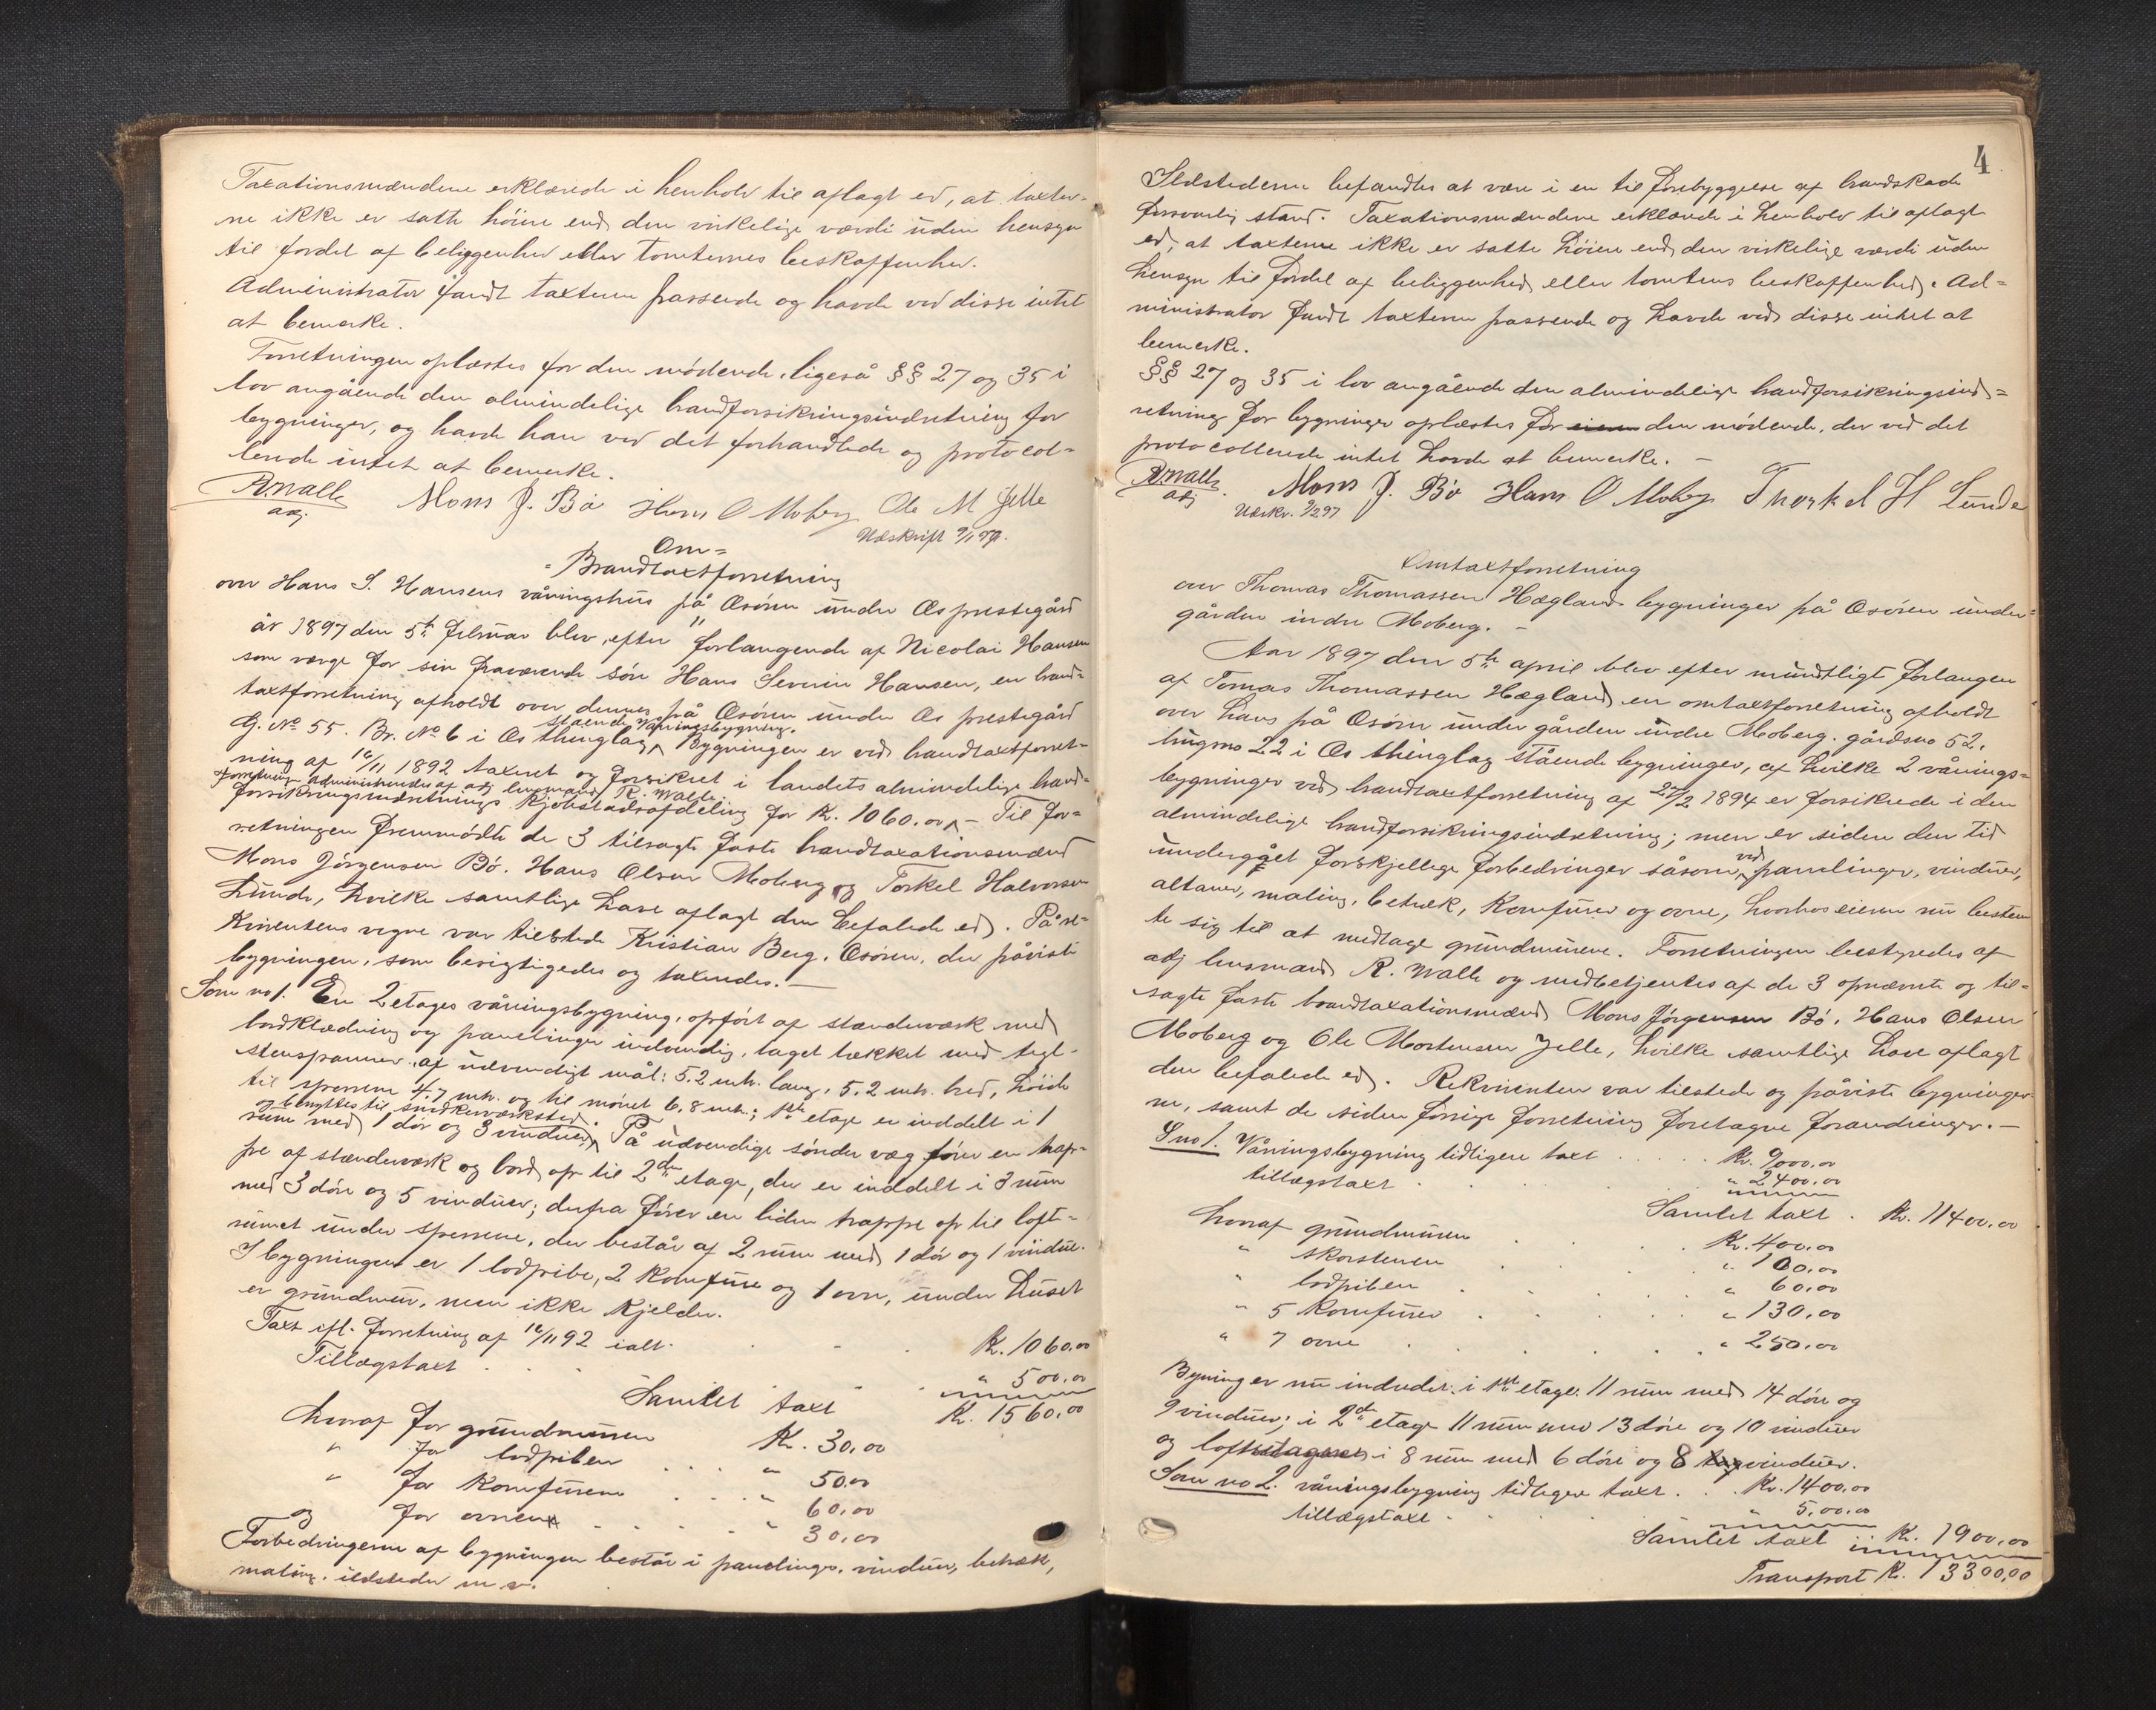 Taxationsmændene erklærede i henhold til aflagt ed, at taxter-
ne ikke er satte höiere end den virkelige værdi uden hensyn
til fordel af beliggenhed eller tomternes beskaffenhed.
Administrator fandt taxterne passende og havde ved disse intet
at bemerke.
Forretningen oplæstes for den mödende, ligeså §§ 27 og 35 i
lov angående den almindelige brandforsikringsindretning for
bygninger, og havde han ved det forhandlede og protocol-
lerede intet at bemerke.
R. Walle Mons J. Bö Hans O Moberg Ole M Jelle
adj.
Udskrift
Om=
Brandtaxtforretning
over Hans S. Hansens våningshus på Osören under Os prestegård
år 1897 den 5te februar blev, efter forlangende af Nicolai Hansen
som værge for sin fraværende sön Hans Severin Hansen, en brand-
taxtforretning afholdt over dennes på Osören under Os prestegård
G. No 55. Br. No 6 i Os thinglag stående våningsbygning. Bygningen er ved brandtaxtforret-
ning af 16/11 1892 taxeret og forsikret i landets almindelige brand-
forsikringsindretnings kjöbstadsafdeling for Kr. 1060.00 - Til for-
forretningen administreredes af adj lensmand R. Walle.
retningen fremmödte de 3 tilsagte faste brandtaxationsmænd
Mons Jörgensen Bö, Hans Olsen Moberg og Torkel Halvorsen
Lunde, hvilke samtlige have aflagt den befalede ed. På re-
kvirentens vegne var tilstede Kristian Berg, Osören, der påviste
bygningen, som besigtigedes og taxeredes. -
Som no 1. En 2 etages våningsbygning, opfört af stænderværk med
bordklædning og panelinger indvendig, taget tækket med tegl-
stenspanner, af udvendigt mål: 5.2 mtr. lang, 5.2 mtr. bred, höide
til sperrene 4.7 mtr. og til mönet 6,8 mtr.; 1ste etage er inddelt i 1
og benyttes til snedkerværksted.
rum med 1 dör og 3 vinduer, På udvendige söndre væg förer en trap-
pe af stænderværk og bord op til 2den etage, der er inddelt i 3 rum
med 3 döre og 5 vinduer; derfra förer en liden trappe op til lofts-
rumet under sperrene, der består af 2 rum med 1 dör og 1 vindue.
I bygningen er 1 lodpibe, 2 komfure og 1 ovn, under huset
er grundmur, men ikke kjelder.
Taxt ifl. forretning af 16/11 92 ialt. Kr. 1060.00
Tillægstaxt " 500.00
Samlet taxt Kr. 1560.00
hvoraf for grundmuren Kr. 30,00
" for lodpiben " 50.00
" for komfurene " 60,00
og for ovnen " 30,00
Forbedringerne af bygningen består i panelinger, vinduer, betræk,
maling, ildsteder m. v.
4
Ildstederne befandtes at være i en til forebyggelse af brandskade
forsvarlig stand. Taxationsmændene erklærede i henhold til aflagt
ed, at taxterne ikke er satte höiere end den virkelige værdi uden
hensyn til fordel af beliggenhed eller tomtens beskaffenhed. Ad=
ministrator fandt taxterne passende og havde ved disse intet at
bemerke.
§§ 27 og 35 i lov angående den almindelige brandforsikringsind-=
retning for bygninger oplæstes for den mödende, der ved det
protocollerede intet havde at bemerke. -
R. Walle Mons J. Bö Hans O Moberg Thorkel H Lunde
adj Udskr. 9/2 97
Omtaxtforretning
over Thomas Thomassen Hægland bygninger på Osören under
gården indre Moberg. -
Aar 1897 den 5te april blev efter mundtligt forlangen
af Tomas Thomassen Hægland en omtaxtforretning afholdt
over hans på Osören under gården indre Moberg, gårdsno 52,
brugsno 22 i Os thinglag stående bygninger, af hvilke 2 vånings-
bygninger ved brandtaxtforretning af 27/2 1894 er forsikrede i den
almindelige brandforsikringsindretning; men er siden den tid
undergået forskjellige forbedringer såsom ved panelinger, vinduer,
altaner, maling, betræk, komfurer og ovne, hvorhos eieren nu bestem
te sig til at medtage grundmurene. Forretningen bestyredes af
adj lensmand R. Walle og medbetjentes af de 3 opnævnte og til-
sagte faste brandtaxationsmænd Mons Jörgensen Bö, Hans Olsen
Moberg og Ole Mortensen Jelle, hvilke samtlige have aflagt
den befalede ed. Rekvirenten var tilstede og påviste bygninger-
ne, samt de siden forrige forretning foretagne forandringer. -
S no 1. Våningsbygning tidligere taxt Kr. 9000.00
tillægstaxt " 2400.00
Samlet taxt . Kr. 11400.00
hvoraf grundmuren Kr. 400.00
" skorstenen " 100.00
" lodpiben " 60.00
" 5 komfurer " 130.00
" 7 ovne " 250.00
Bygning er nu inddelt: i 1ste etage: 11 rum med 14 döre og
9 vinduer; i 2den etage 11 rum med 13 döre og 10 vinduer
og lofts i 8 rum med 6 döre og 8 vinduer.
Som no 2. våningsbygning tidligere taxt . . Kr. 1400.00
tillægstaxt 5,00.00
Samlet taxt Kr. 1900.00
Transport Kr. 13300,00